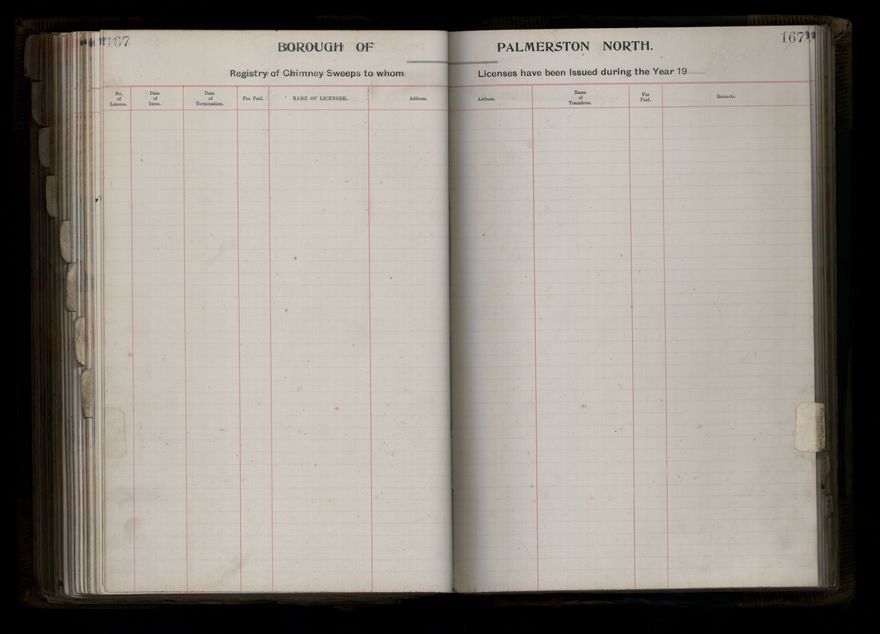 167
167
BOROUGH OF PALMERSTON NORTH.
Registry of Chimney Sweeps to whom Licenses have been Issued during the Year 19
No. of License.
Date of Issue.
Date of Termination.
Fee Paid.
NAME OF LICENSEE.
Address.
Address.
Name of Transferee.
Fee Paid.
Remarks.